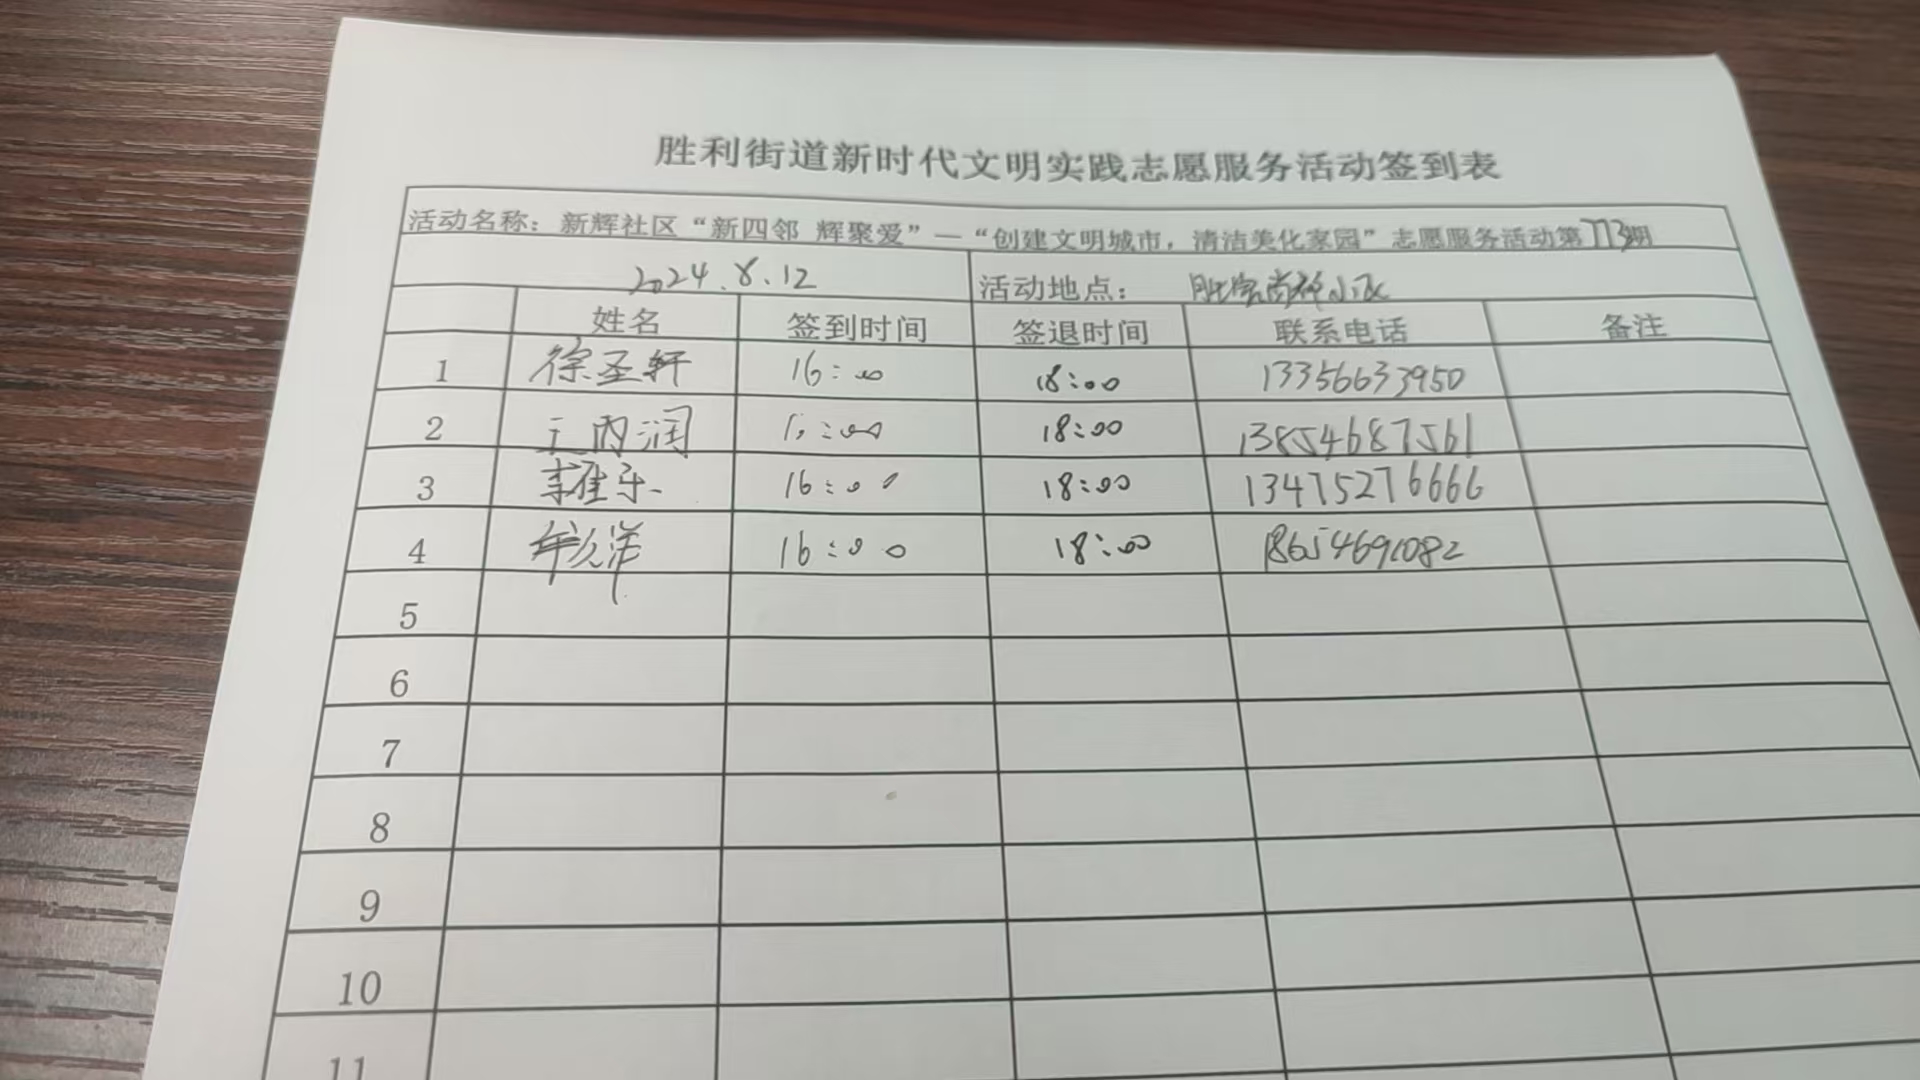 胜利街道新时代文明实践志愿服务活动签到表
活动名称：新辉社区“新四邻 辉聚爱”—“创建文明城市，清洁美化家园”志愿服务活动第773期
2024.8.12 活动地点： 小区
姓名 签到时间 签退时间 联系电话 备注
1 徐圣轩 16:00 18:00 13356633950
2 王丙润 16:00 18:00 13854687561
3 16:00 18:00 13475276666
4 16:00 18:00 18654691082
5
6
7
8
9
10
11